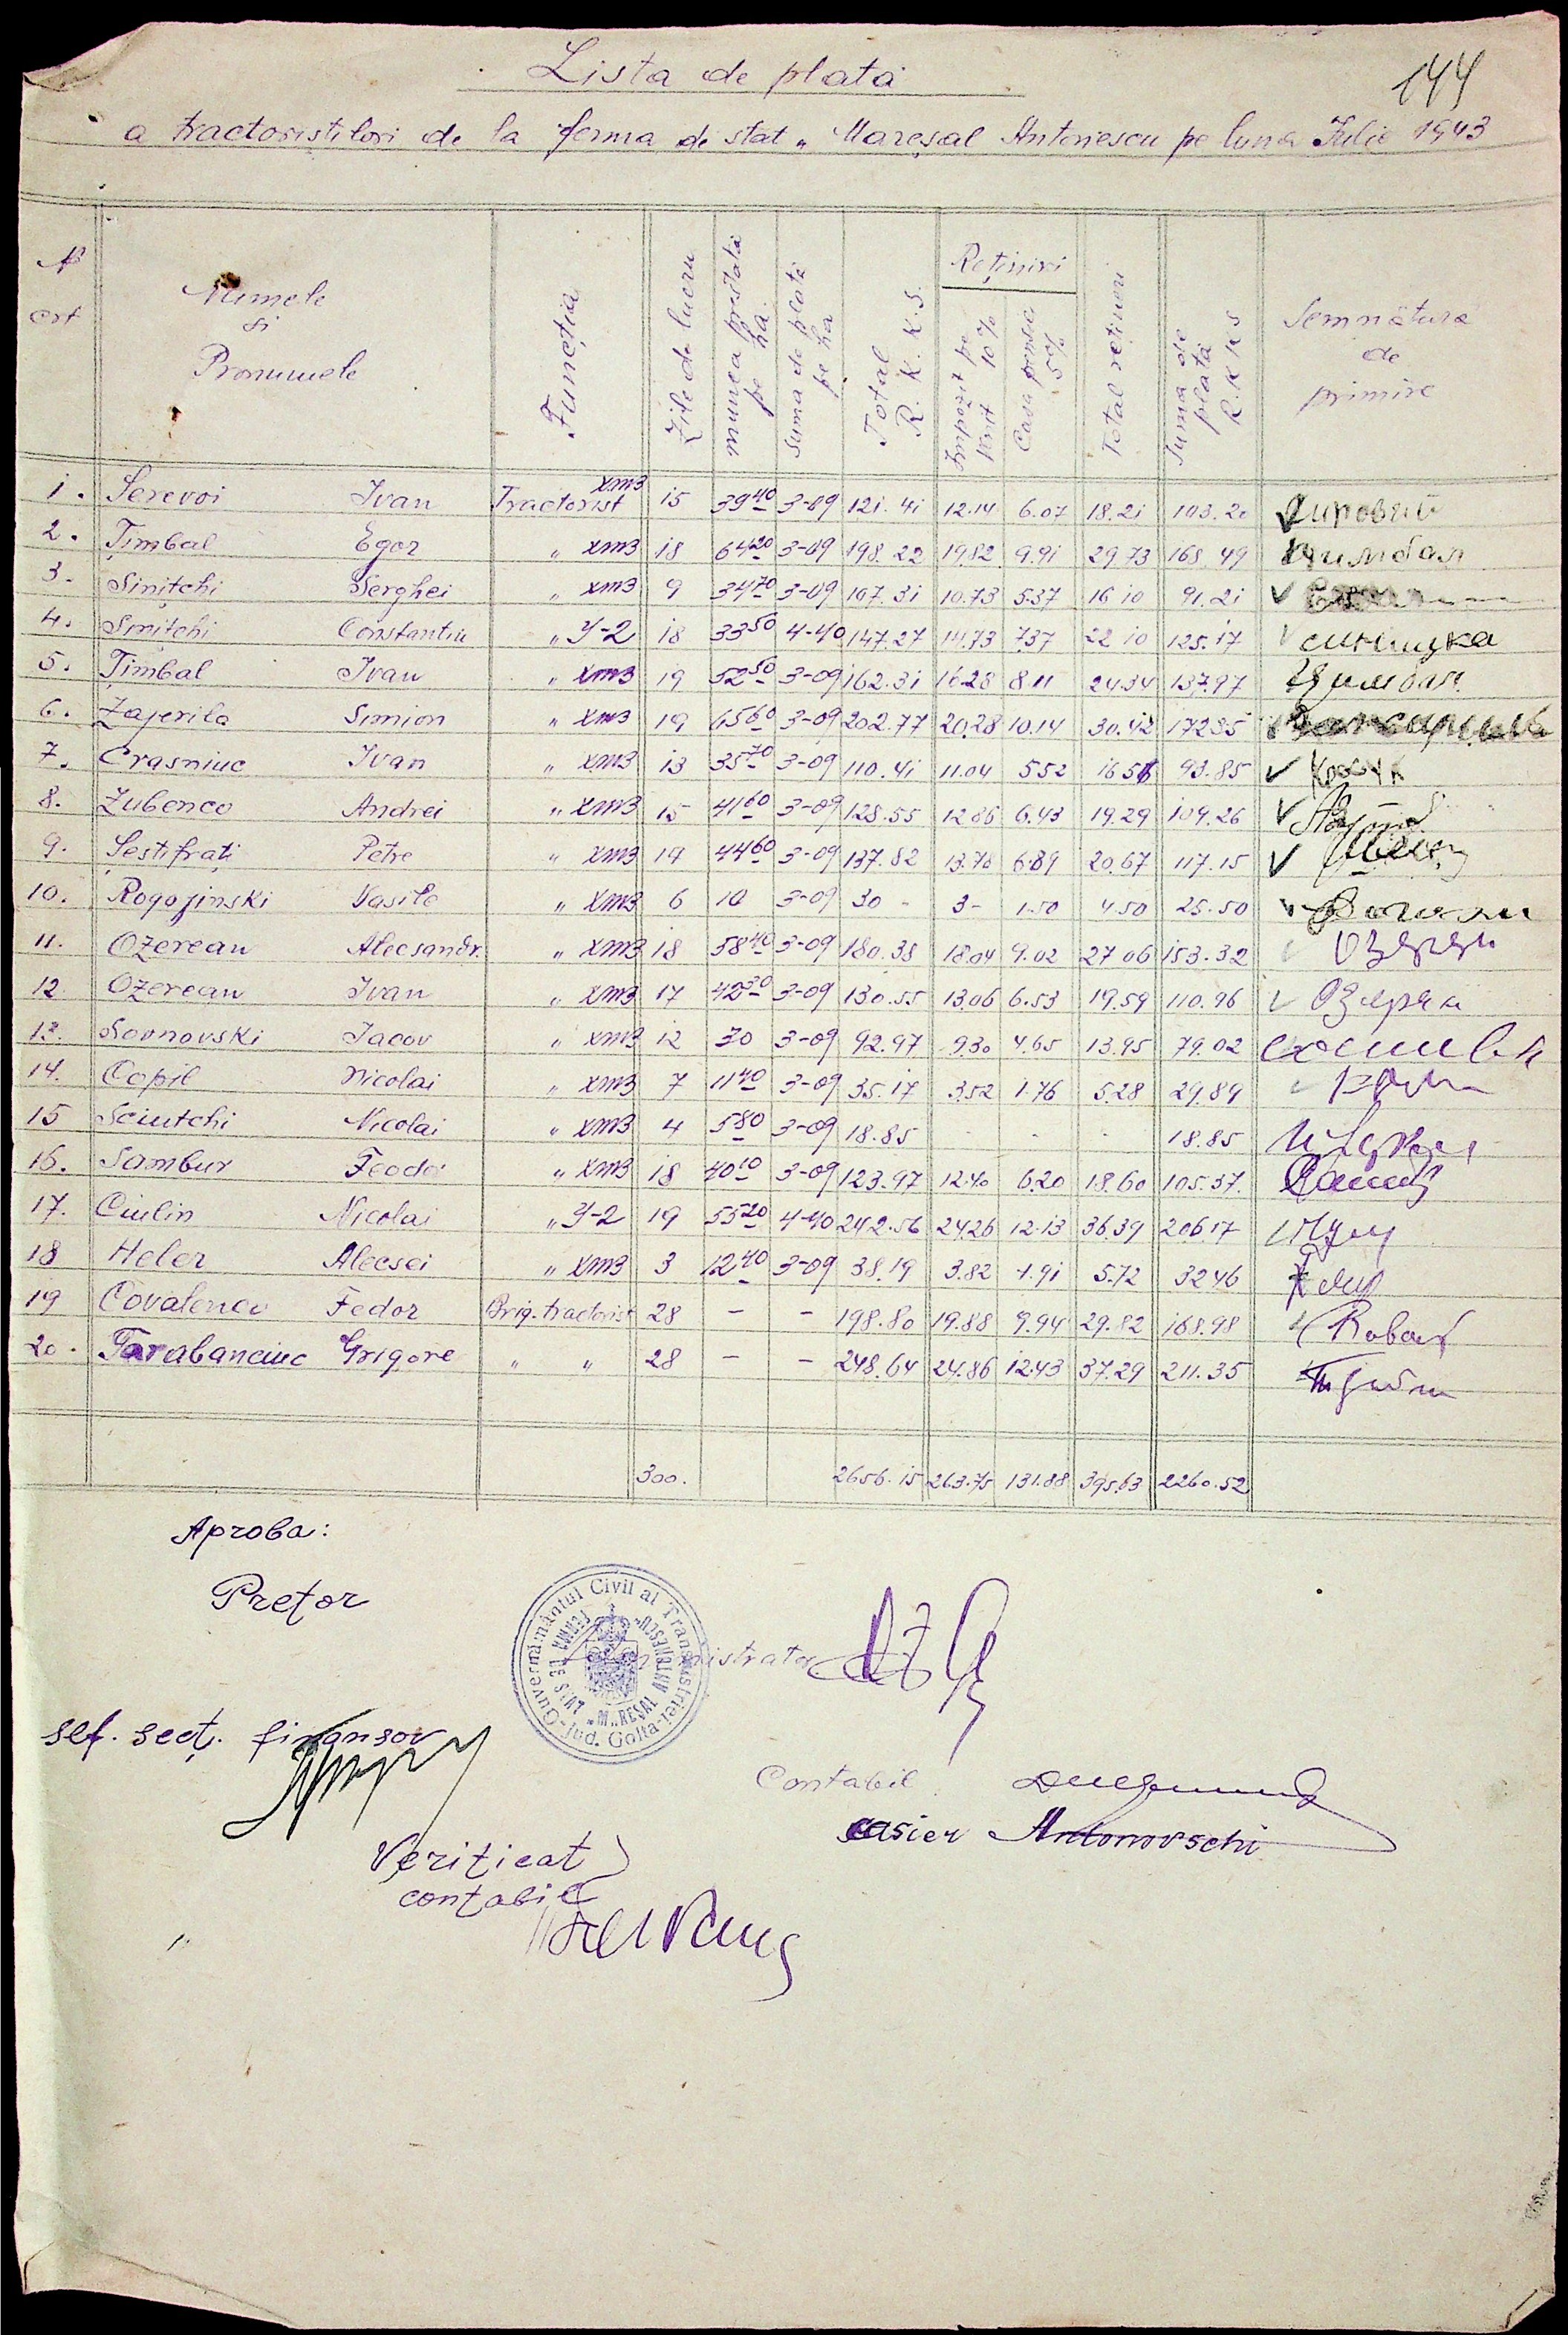 144
Lista de plata
a tractoristilori de la ferma de stat „ Mareșal Antonescu pe luna Iulie 1943
N crt | Numele si Pronumele | Funcția | Zile de lucru | munca prestata pe ha. | Suma de plată pe ha | Total R.K.K.S. | Rețineri | Impozit pe venit 10% | Casa pensie 5% | Total rețineri | Suma de plată R.K.K.S | Semnătura de primire
1. Serevoi Ivan Tractorist хтз 15 39 40 3-09 121.41 12.14 6.07 18.21 103.20
2. Țimbal Egor „ хтз 18 64 20 3-09 198.22 19.82 9.91 29.73 168.49 Цимбал
3. Sinițchi Serghei „ хтз 9 34 70 3-09 107.31 10.73 5.37 16 10 91.21
4. Sinițchi Constantin „ У-2 18 33 50 4-40 147.27 14.73 7.37 22 10 125.17 синицка
5. Țimbal Ivan „ хтз 19 52 50 3-09 162.31 16.28 8.11 24.34 137.97 Цимбал
6. Zajerila Simion „ хтз 19 65 60 3-09 202.77 20.28 10.14 30.42 172 35
7. Crasniuc Ivan „ хтз 13 35 70 3-09 110.41 11.04 5.52 16 56 93.85
8. Zubenco Andrei „ хтз 15 41 60 3-09 128.55 12 86 6.43 19.29 109.26
9. Șestifrați Petre „ хтз 19 44 60 3-09 137.82 13.78 6.89 20.67 117.15
10. Rogojinski Vasile „ хтз 6 10 3-09 30 - 3- 1.50 4.50 25.50
11. Ozerean Alecsandr. „ хтз 18 58 40 3-09 180.38 18.04 9.02 27 06 153.32
12 Ozerean Ivan „ хтз 17 42 30 3-09 130.55 13.06 6.53 19.59 110.96
13. Sosnovski Iacov „ хтз 12 30 3-09 92.97 9.30 4.65 13.95 79.02
14. Copil Nicolai „ хтз 7 11 40 3-09 35.17 3.52 1.76 5.28 29.89
15 Sciutchi Nicolai „ хтз 4 5 80 3-09 18.85 - - - 18.85
16. Sambur Feodor „ хтз 18 40 10 3-09 123.97 12.40 6.20 18.60 105.37.
17. Ciulin Nicolai „ У-2 19 55 20 4-40 242.56 24.26 12.13 36.39 206.17
18 Heler Alecsei „ хтз 3 12 40 3-09 38.19 3.82 1.91 5.72 32 46
19 Covalenco Fedor Brig. tractorist 28 - - 198.80 19.88 9.94 29.82 168.98
20. Tarabanciuc Grigore „ „ 28 - - 248.64 24.86 12.43 37.29 211.35
300. 2656.15 263.75 131.88 395.63 2260.52
Aproba:
Prețor
Guvernământul Civil al Transnistriei-Jud. Golta-
FERMA DE STAT „M..REȘAL ANTONESCU"
Administrator
sef. secț. finansov
Contabil
casier Antonovschi
Verificat
contabil